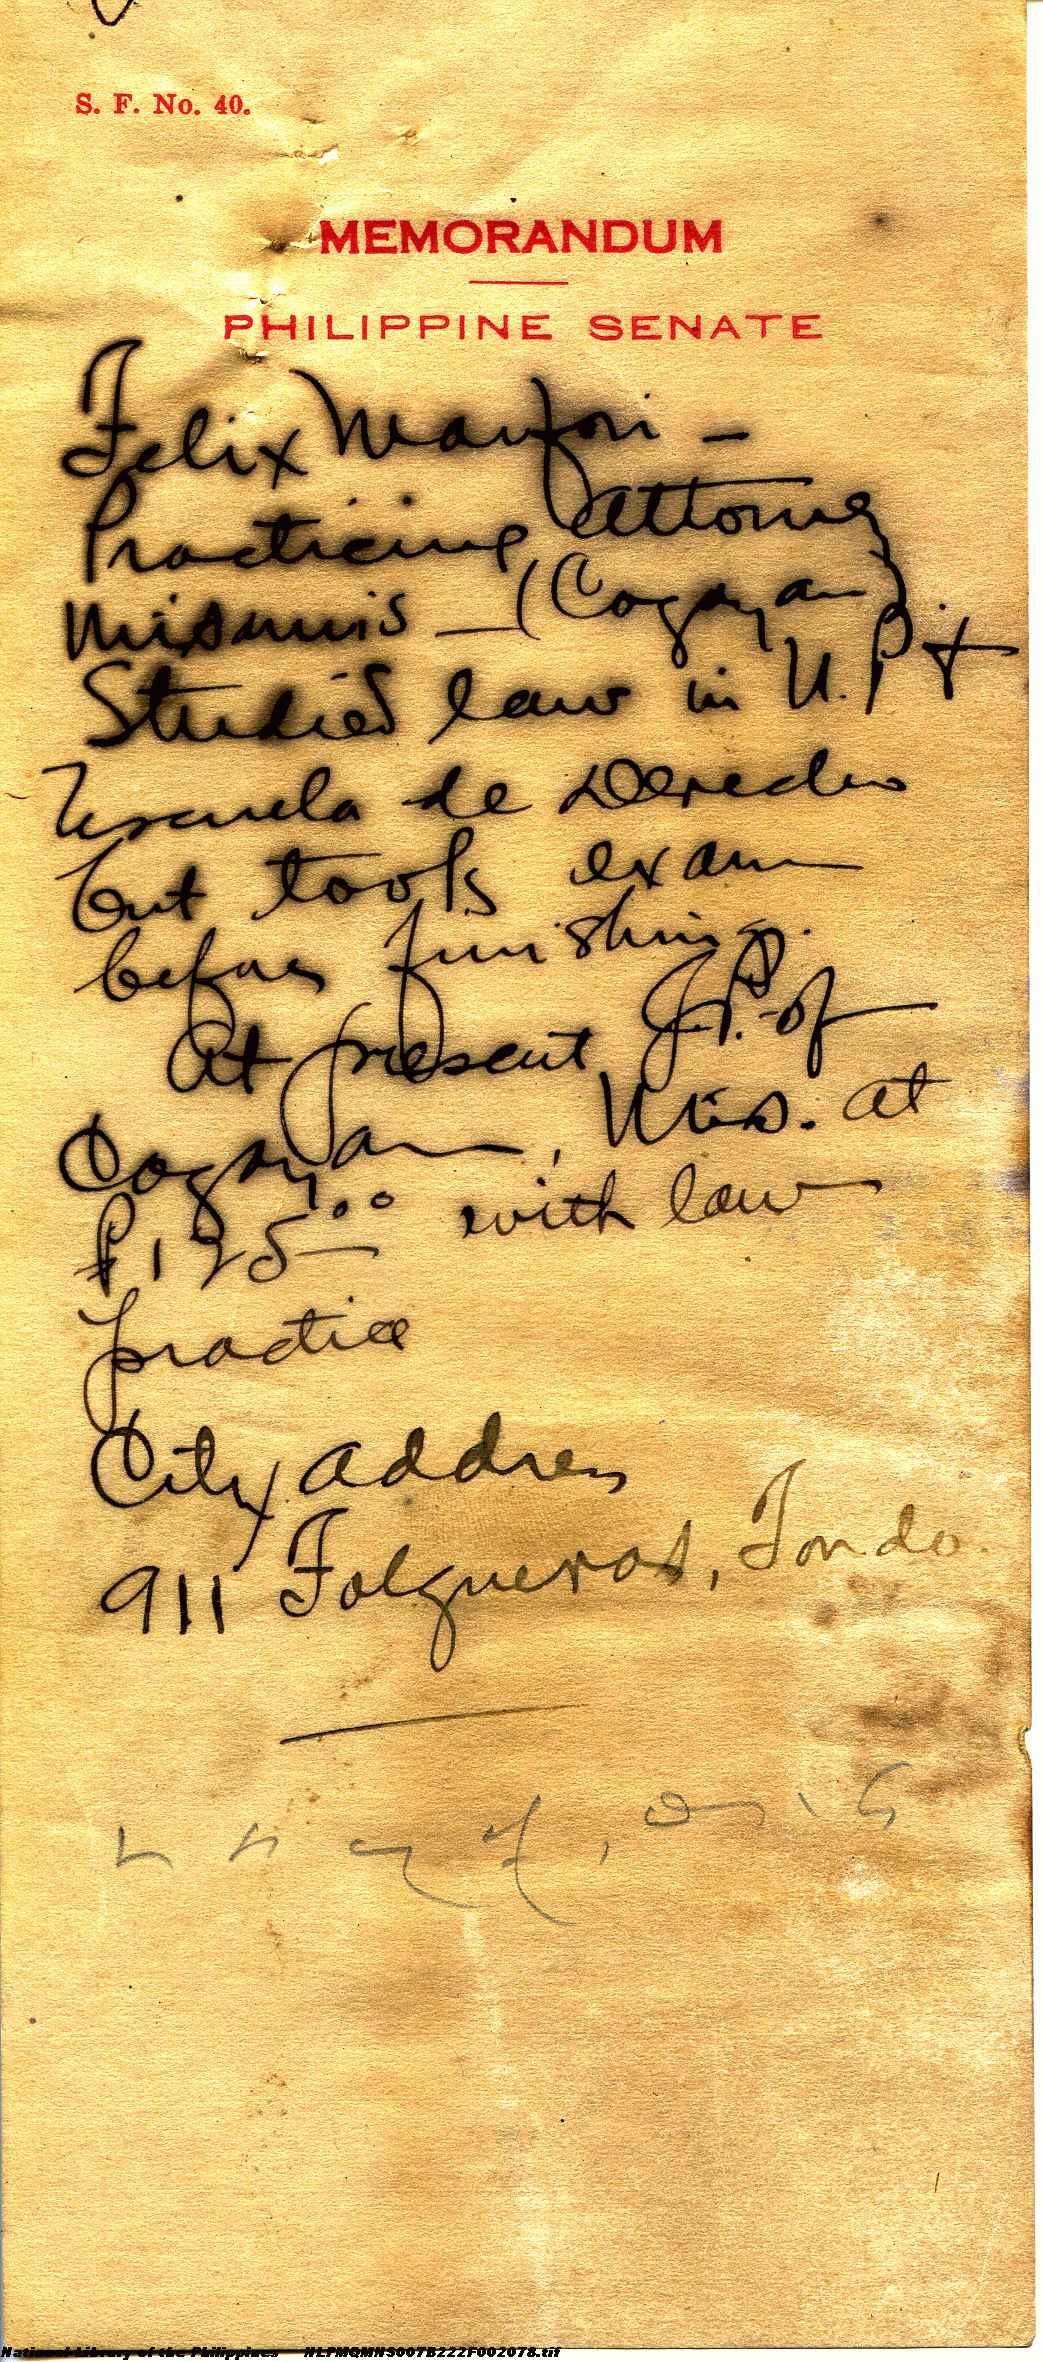 S. F. No. 40.
MEMORANDUM
PHILIPPINE SENATE
Felix —
Practicing attorney
Misamis — (Cagayan)
Studied law in U.P. &
Escuela de Derecho
but took exam
before finishing.
At present J.P. of
Cagayan, Mis. at
₱125.00 with law
practice
City address
911 Folgueras, Tondo.
National Library of the Philippines NLPMQMNS007B222F002078.tif